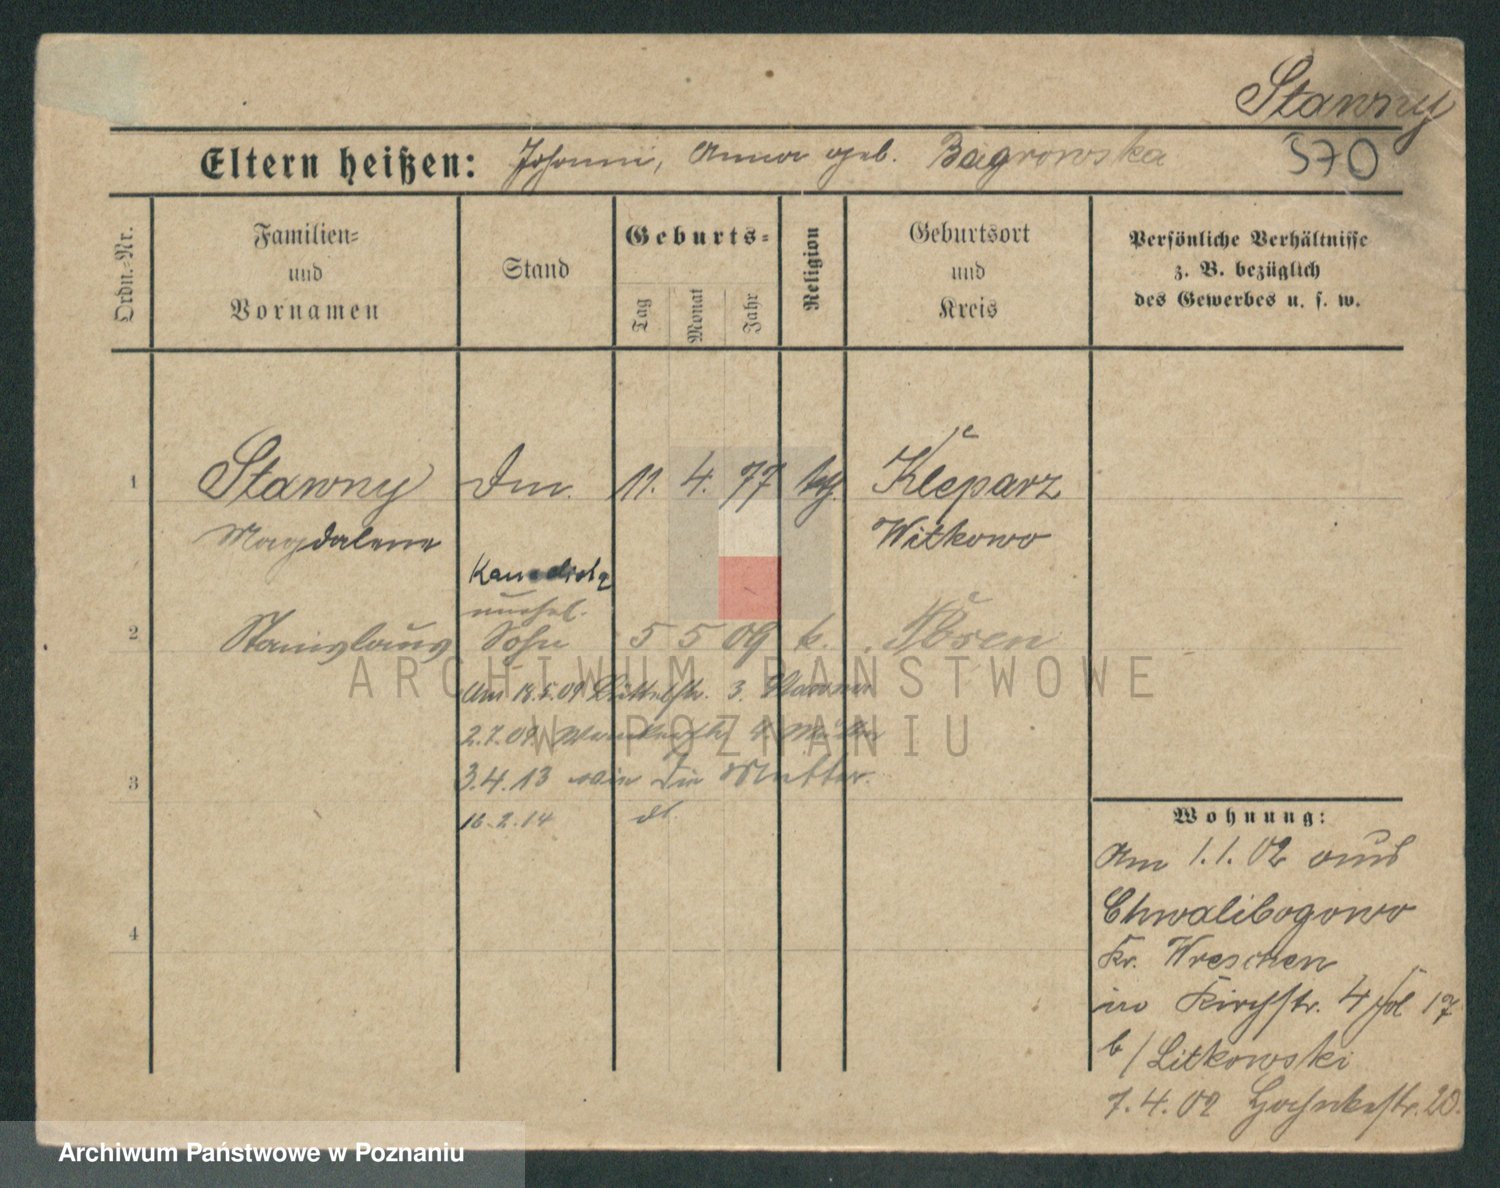 Stawny
Eltern heißen: Johann, Anna geb. Bagrowska 370
Ordn.-Nr.
Familien-
und
Vornamen
Stand
Geburts-
Tag
Monat
Jahr
Religion
Geburtsort
und
Kreis
Persönliche Verhältnisse
z. B. bezüglich
des Gewerbes u. s. w.
1 Stawny Dm. 11. 4. 77 kth. Kleparz
Magdalene Witkowo
unehel.
2 Stanislaus Sohn 5 5 09 k. Posen
Am 18.5.09 3.
2.7.09
3 3.4.13 wie die Mutter.
16.2.14 dt.
4
Wohnung:
Am 1.1.02 aus
Chwalibogowo
Kr. Wreschen
in Kirchstr. 4 17
b/ Litkowski
7.4.02 20.
ARCHIWUM PAŃSTWOWE
W POZNANIU
Archiwum Państwowe w Poznaniu